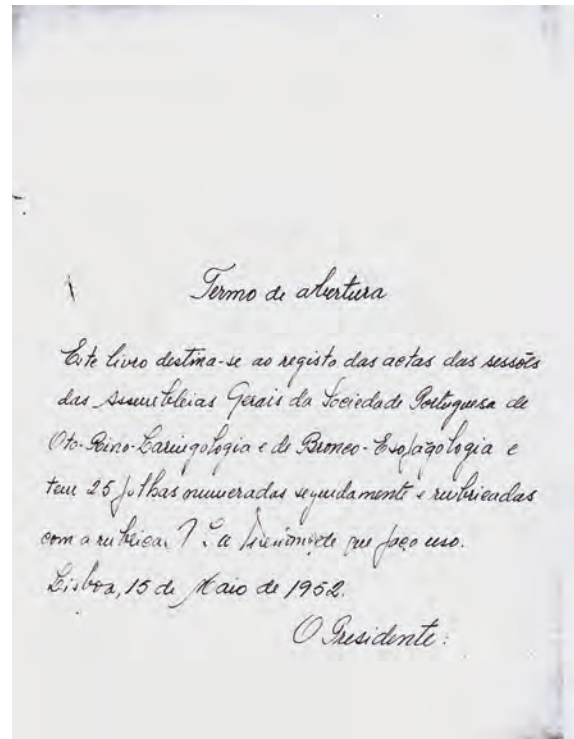 Termo de abertura
Este livro destina-se ao registo das actas das sessões
das Assembleias Gerais da Sociedade Portuguesa de
Oto-Rino-Laringologia e de Bronco-Esofagologia e
tem 25 folhas numeradas seguidamente e rubricadas
com a rubrica que faço uso.
Lisboa, 15 de Maio de 1952.
O Presidente: